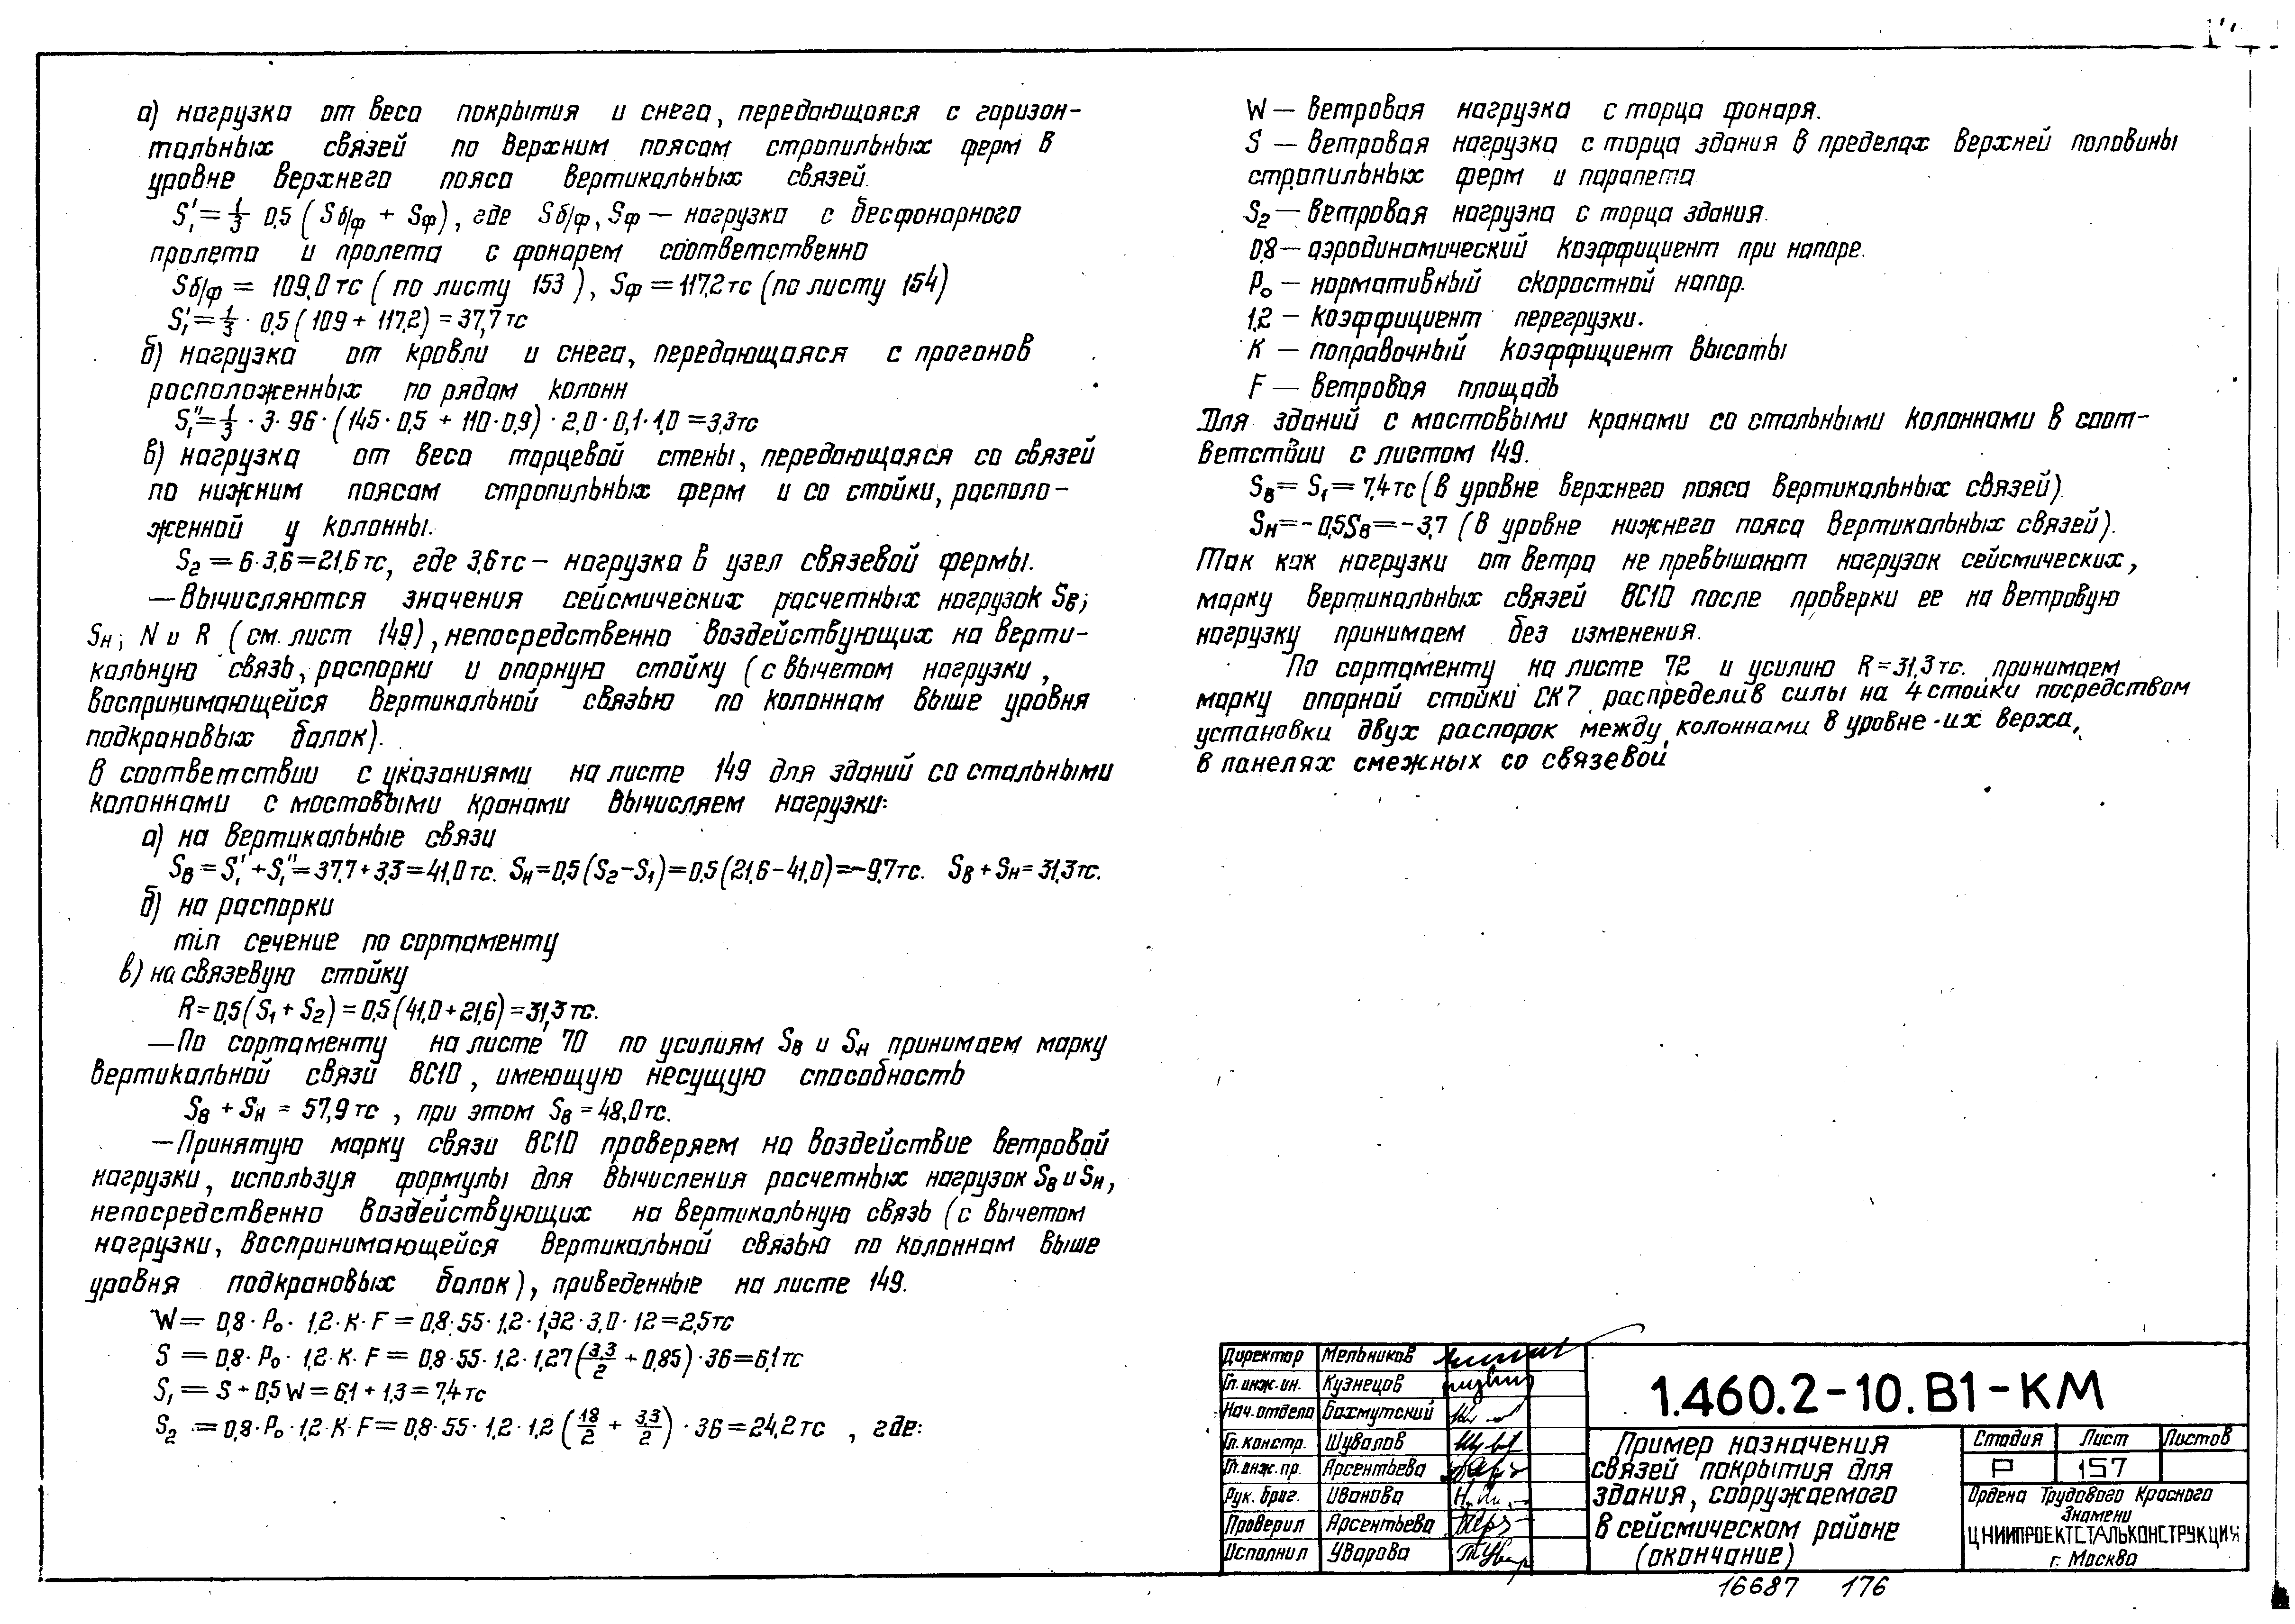 а) нагрузка от веса покрытия и снега, передающаяся с горизон-
тальных связей по верхним поясам стропильных ферм в
уровне верхнего пояса вертикальных связей.
S₁' = 1/3 · 0,5 (Sб/ф + Sф), где Sб/ф, Sф — нагрузка с бесфонарного
пролета и пролета с фонарем соответственно
Sб/ф = 109,0 тс (по листу 153), Sф = 117,2 тс (по листу 154)
S₁' = 1/3 · 0,5 (109 + 117,2) = 37,7 тс
б) нагрузка от кровли и снега, передающаяся с прогонов
расположенных по рядам колонн
S₁'' = 1/3 · 3 · 96 · (145 · 0,5 + 110 · 0,9) · 2,0 · 0,1 · 1,0 = 3,3 тс
в) нагрузка от веса торцевой стены, передающаяся со связей
по нижним поясам стропильных ферм и со стойки, располо-
женной у колонны.
S₂ = 6 · 3,6 = 21,6 тс, где 3,6 тс – нагрузка в узел связевой фермы.
— Вычисляются значения сейсмических расчетных нагрузок Sв;
Sн; N и R (см. лист 149), непосредственно воздействующих на верти-
кальную связь, распорки и опорную стойку (с вычетом нагрузки,
воспринимающейся вертикальной связью по колоннам выше уровня
подкрановых балок).
В соответствии с указаниями на листе 149 для зданий со стальными
колоннами с мостовыми кранами вычисляем нагрузки:
а) на вертикальные связи
Sв = S₁' + S₁'' = 37,7 + 3,3 = 41,0 тс. Sн = 0,5 (S₂ – S₁) = 0,5 (21,6 – 41,0) = –9,7 тс. Sв + Sн = 31,3 тс.
б) на распорки
min сечение по сортаменту
в) на связевую стойку
R = 0,5 (S₁ + S₂) = 0,5 (41,0 + 21,6) = 31,3 тс.
— По сортаменту на листе 70 по усилиям Sв и Sн принимаем марку
вертикальной связи ВС10, имеющую несущую способность
Sв + Sн = 57,9 тс, при этом Sв = 48,0 тс.
— Принятую марку связи ВС10 проверяем на воздействие ветровой
нагрузки, используя формулы для вычисления расчетных нагрузок Sв и Sн,
непосредственно воздействующих на вертикальную связь (с вычетом
нагрузки, воспринимающейся вертикальной связью по колоннам выше
уровня подкрановых балок), приведенные на листе 149.
W = 0,8 · P₀ · 1,2 · K · F = 0,8 · 55 · 1,2 · 1,32 · 3,0 · 12 = 2,5 тс
S = 0,8 · P₀ · 1,2 · K · F = 0,8 · 55 · 1,2 · 1,27 (3,3/2 + 0,85) · 36 = 6,1 тс
S₁ = S + 0,5 W = 6,1 + 1,3 = 7,4 тс
S₂ = 0,8 · P₀ · 1,2 · K · F = 0,8 · 55 · 1,2 · 1,2 (18/2 + 3,3/2) · 36 = 24,2 тс, где:
W — ветровая нагрузка с торца фонаря.
S — ветровая нагрузка с торца здания в пределах верхней половины
стропильных ферм и парапета
S₂ — ветровая нагрузка с торца здания.
0,8 — аэродинамический коэффициент при напоре.
P₀ — нормативный скоростной напор.
1,2 — коэффициент перегрузки.
K — поправочный коэффициент высоты
F — ветровая площадь
Для зданий с мостовыми кранами со стальными колоннами в соот-
ветствии с листом 149.
Sв = S₁ = 7,4 тс (в уровне верхнего пояса вертикальных связей).
Sн = – 0,5Sв = – 3,7 (в уровне нижнего пояса вертикальных связей).
Так как нагрузки от ветра не превышают нагрузок сейсмических,
марку вертикальных связей ВС10 после проверки ее на ветровую
нагрузку принимаем без изменения.
По сортаменту на листе 72 и усилию R = 31,3 тс. принимаем
марку опорной стойки СК7, распределив силы на 4 стойки посредством
установки двух распорок между колоннами в уровне их верха,
в панелях смежных со связевой
Директор Мельников
Гл. инж. ин. Кузнецов
Нач. отдела Бахмутский
Гл. констр. Шувалов
Гл. инж. пр. Арсентьева
Рук. бриг. Иванова
Проверил Арсентьева
Исполнил Уварова
1.460.2-10.В1-КМ
Пример назначения
связей покрытия для
здания, сооружаемого
в сейсмическом районе
(окончание)
Стадия Лист Листов
Р 157
Ордена Трудового Красного
Знамени
ЦНИИПРОЕКТСТАЛЬКОНСТРУКЦИЯ
г. Москва
16687 176